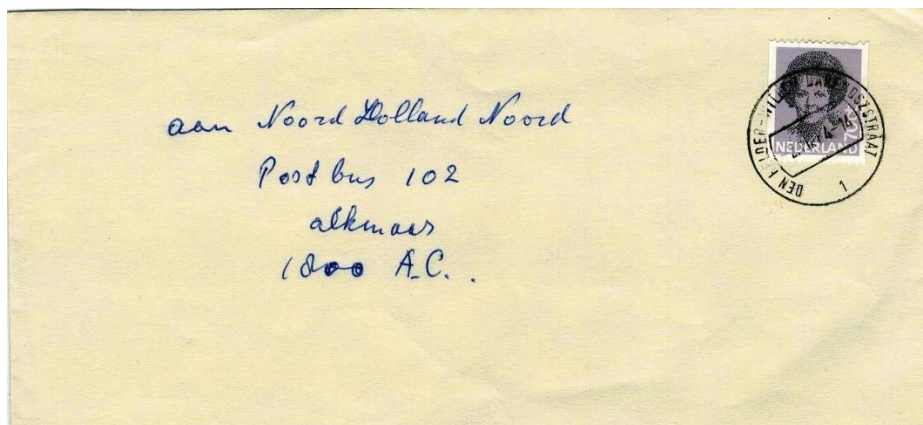 aan Noord Holland Noord
Postbus 102
alkmaar
1800 A.C..
70c
NEDERLAND
DEN HELDER-WILLEM BARENDSZSTRAAT
1